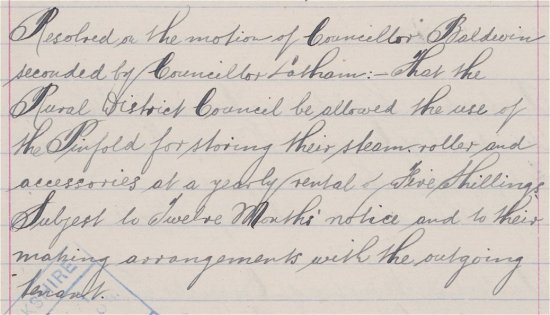 Resolved on the motion of Councillor Baldwin
seconded by Councillor Latham:- That the
Rural District Council be allowed the use of
the Pinfold for storing their steam roller and
accessories at a yearly rental of Five Shillings
Subject to Twelve Months' notice and to their
making arrangements with the outgoing
tenant.
KSHIRE